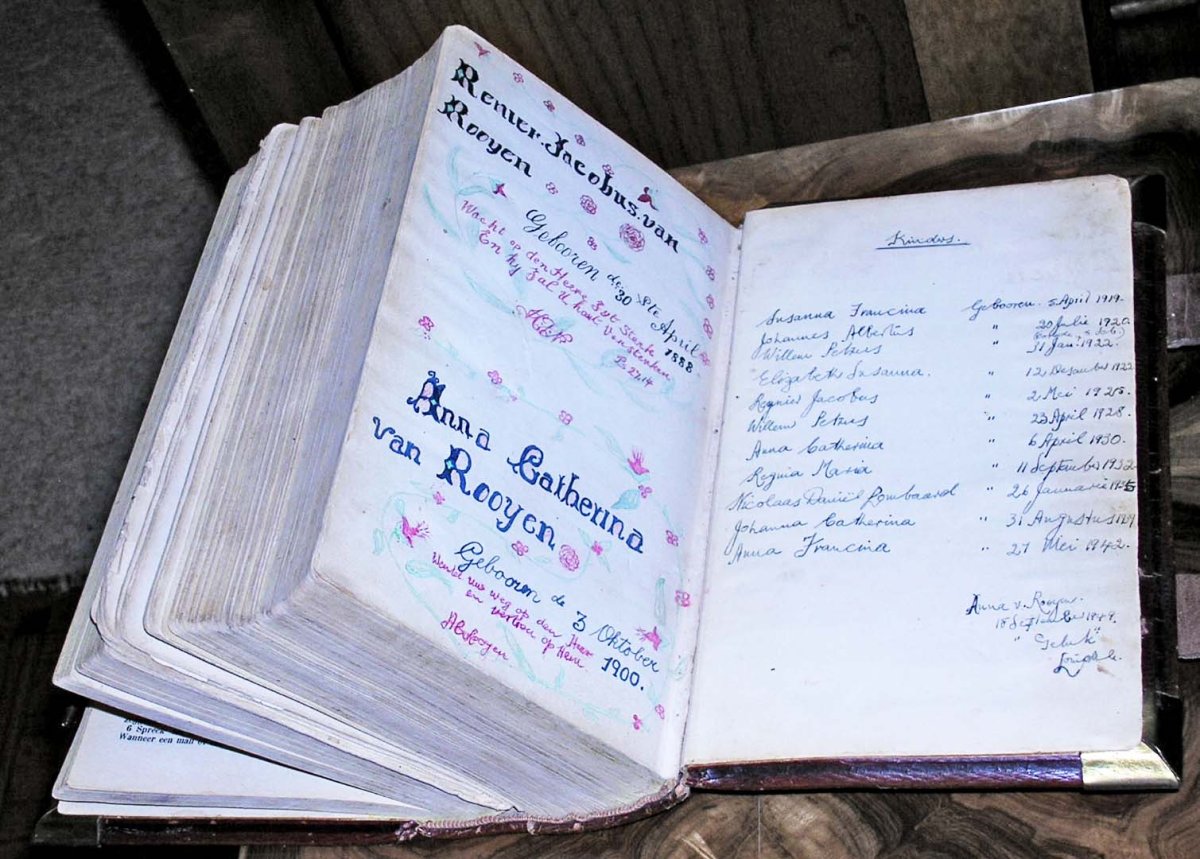 Renier Jacobus van
Rooyen
Gebooren de 30 ste April 1888
Wacht op den Heere Zyt Sterk
En hy zal U hart Versterken
Ps 27.14
Anna Catherina
van Rooyen
Gebooren de 3 Oktober
1900.
Wentel uw weg op den Heer
en vertrou op Hem
AvRooyen
Kinders.
Susanna Francina Gebooren 5 April 1919.
Johannes Albertus " 20 Julie 1920.
Willem Petrus " 31 Jan: 1922.
Elizabeth Susanna. " 12 Desember 1922
Regnier Jacobus " 2 Mei 1925.
Willem Petrus " 23 April 1928.
Anna Catherina " 6 April 1930.
Regnia Maria " 11 September 1932
Nicolaas Daniël Lombaard " 26 Januarie 1935
Johanna Catherina " 31 Augustus
Anna Francina " 27 Mei 1942.
Anna v. Rooyen.
18 September 1949.
"Geluk"
6 Spreek
Wanneer een man